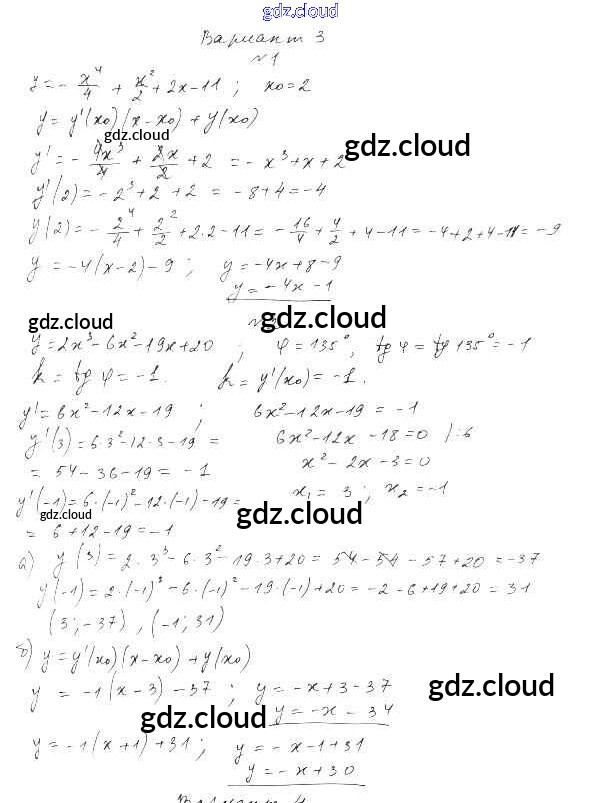 gdz.cloud
Вариант 3
№1
y = - x⁴/4 + x²/2 + 2x - 11 ; x₀ = 2
y = y'(x₀)(x - x₀) + y(x₀)
gdz.cloud
gdz.cloud
y' = - 4x³/4 + 2x/2 + 2 = - x³ + x + 2
y'(2) = - 2³ + 2 + 2 = - 8 + 4 = - 4
y(2) = - 2⁴/4 + 2²/2 + 2·2 - 11 = - 16/4 + 4/2 + 4 - 11 = - 4 + 2 + 4 - 11 = - 9
y = - 4(x - 2) - 9 ; y = - 4x + 8 - 9
y = - 4x - 1
gdz.cloud
gdz.cloud
y = 2x³ - 6x² - 19x + 20 ; φ = 135°, tg φ = tg 135° = - 1
k = tg φ = - 1. k = y'(x₀) = - 1.
y' = 6x² - 12x - 19 ; 6x² - 12x - 19 = - 1
y'(3) = 6·3² - 12·3 - 19 = 6x² - 12x - 18 = 0 /:6
= 54 - 36 - 19 = - 1 x² - 2x - 3 = 0
y'(-1) = 6·(-1)² - 12·(-1) - 19 = x₁ = 3 ; x₂ = - 1
gdz.cloud
gdz.cloud
= 6 + 12 - 19 = - 1
а) y(3) = 2·3³ - 6·3² - 19·3 + 20 = 54 - 54 - 57 + 20 = - 37
y(-1) = 2·(-1)³ - 6·(-1)² - 19·(-1) + 20 = - 2 - 6 + 19 + 20 = 31
(3 ; - 37) , (- 1 ; 31)
б) y = y'(x₀)(x - x₀) + y(x₀)
gdz.cloud
y = - 1(x - 3) - 37 ; y = - x + 3 - 37
y = - x - 34
gdz.cloud
y = - 1(x + 1) + 31 ; y = - x - 1 + 31
y = - x + 30
Вариант 4